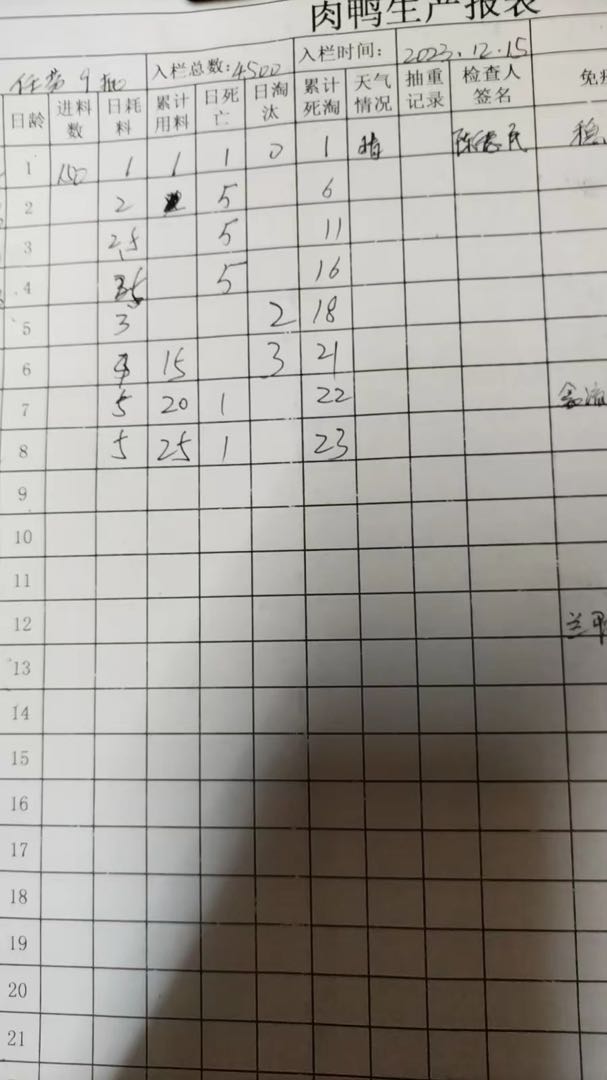 肉鸭生产报表
第9批 入栏总数:4500 入栏时间: 2023.12.15
日龄 进料数 日耗料 累计用料 日死亡 日淘汰 累计死淘 天气情况 抽重记录 检查人签名 免疫
1 150 1 1 1 0 1 晴
2 2 5 6
3 2.5 5 11
4 5 16
5 3 2 18
6 4 15 3 21
7 5 20 1 22
8 5 25 1 23
9
10
11
12
13
14
15
16
17
18
19
20
21